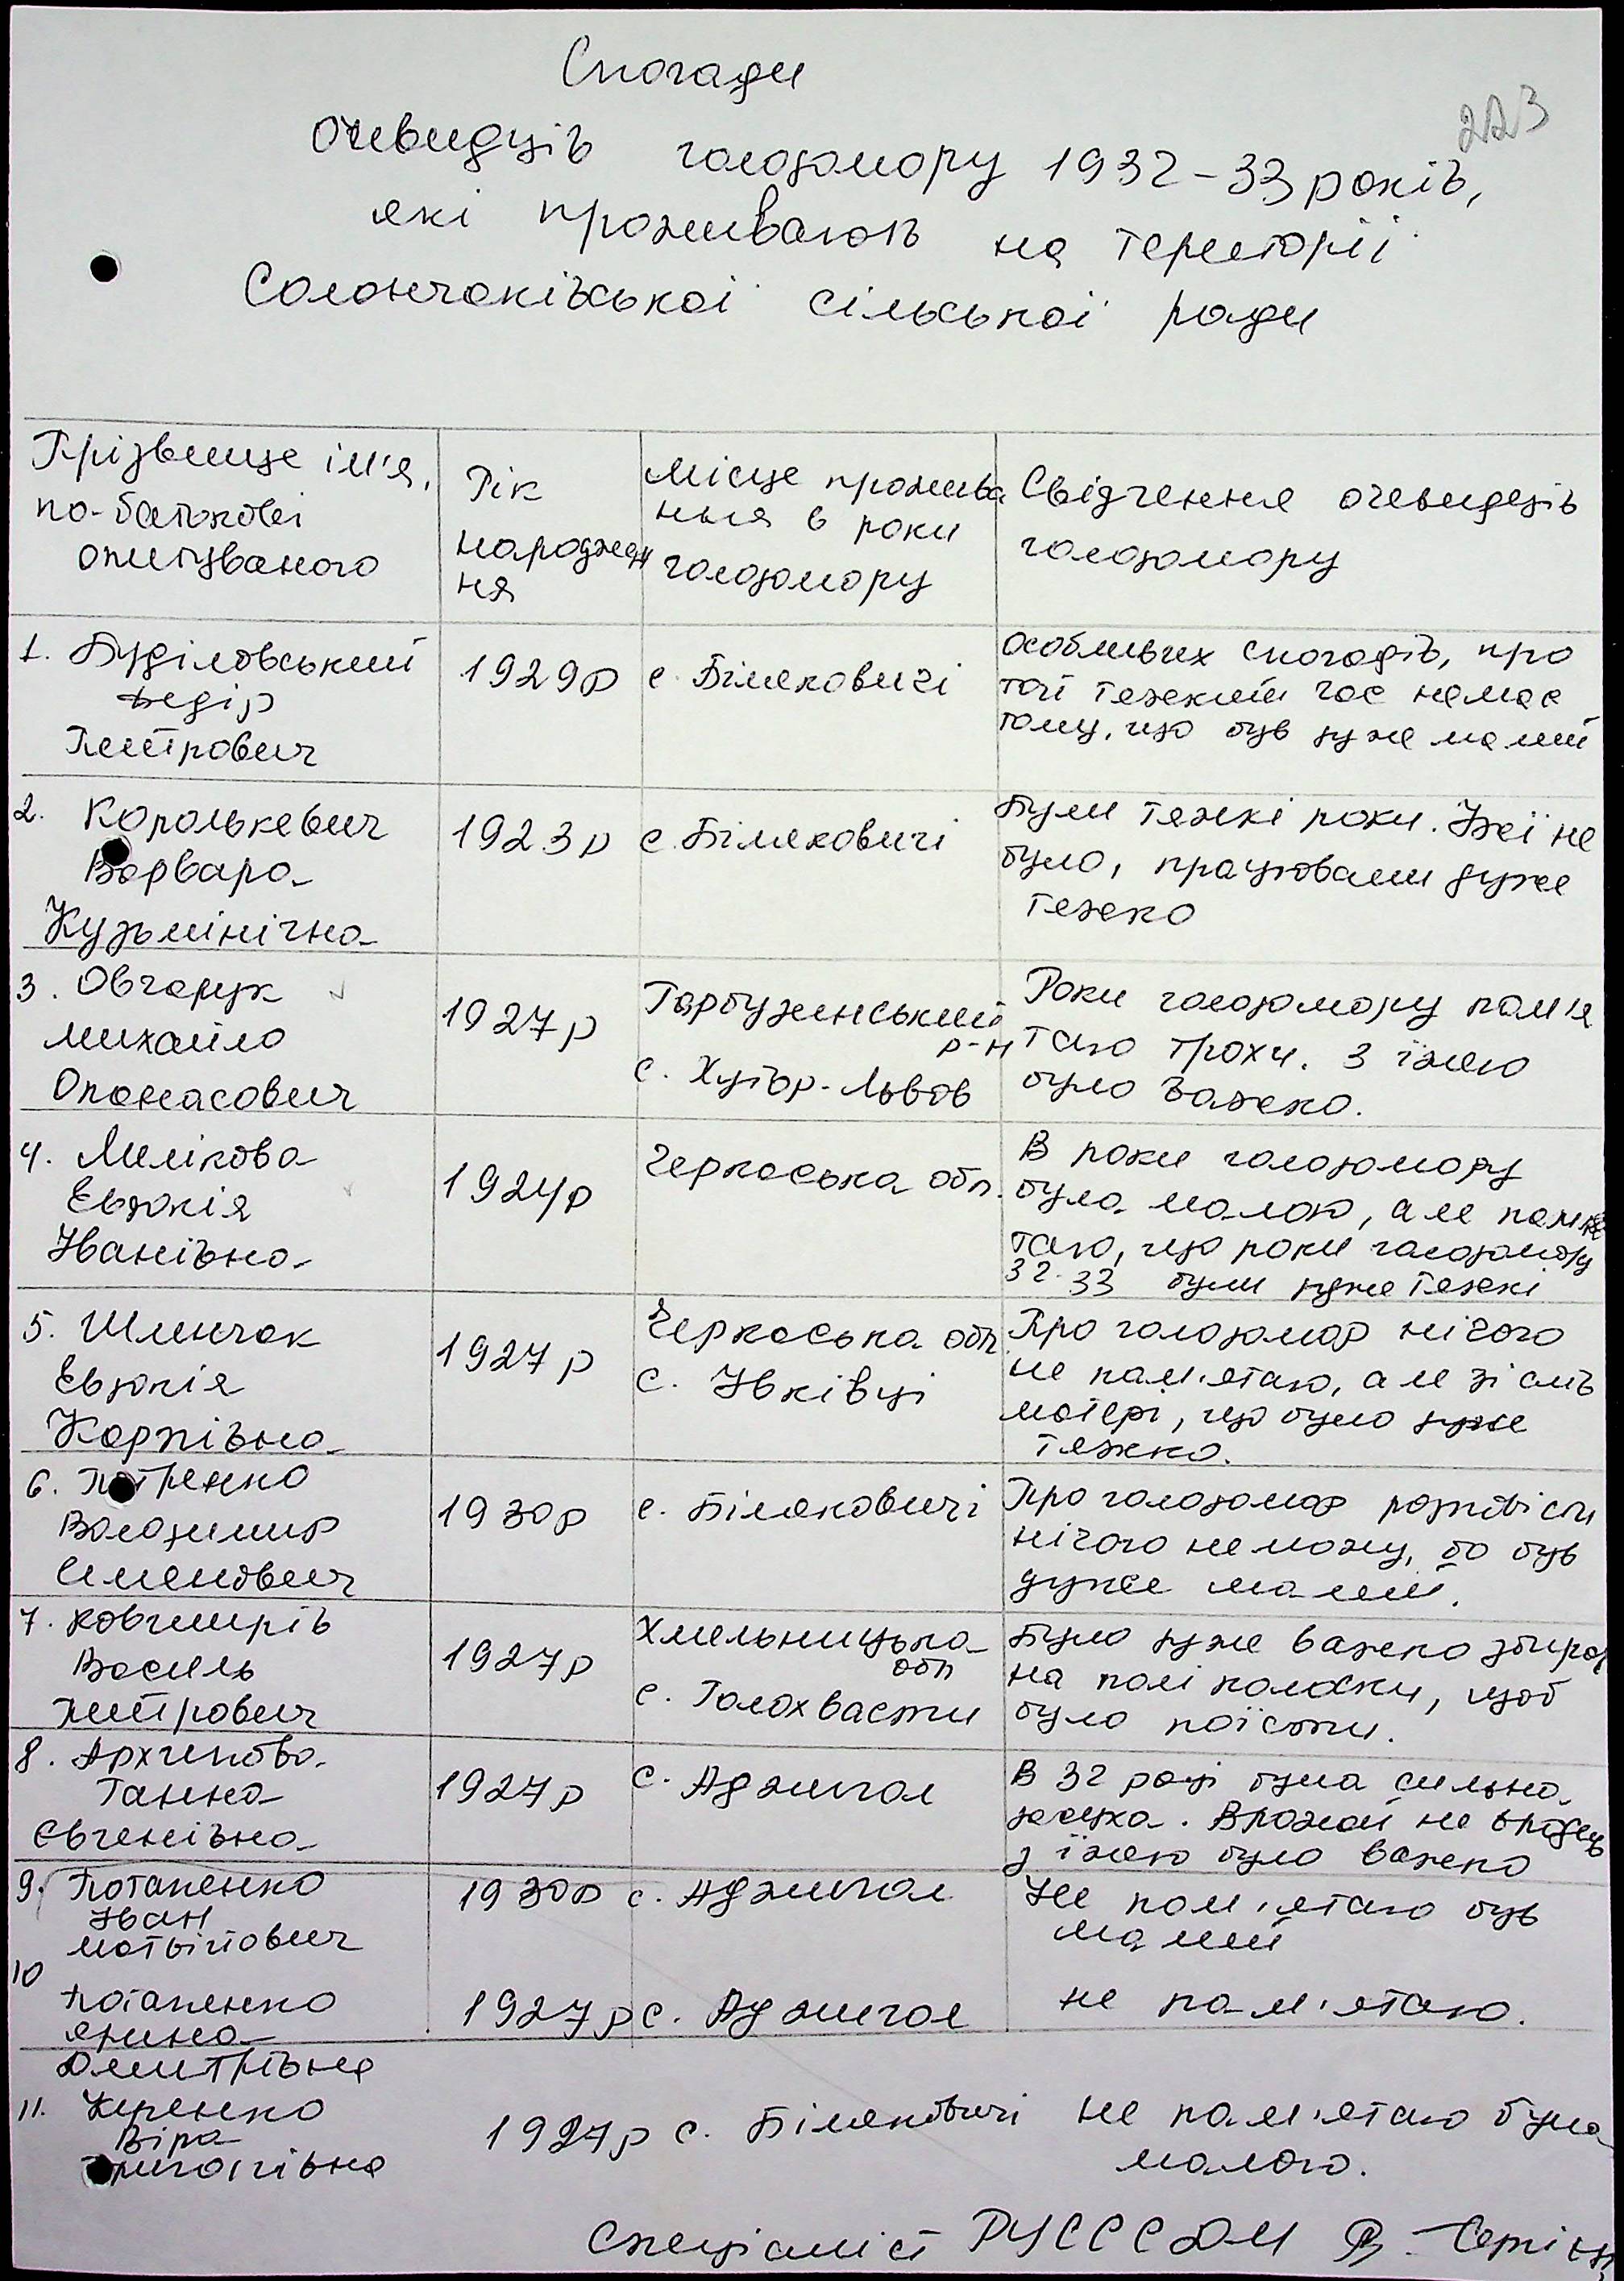 Спогади
223
очевидців голодомору 1932-33 років,
які проживають на території
Солончаківської сільської ради
Прізвище ім'я,
по-батькові
опитуваного
Рік
народжен
ня
Місце прожива
ння в роки
голодомору
Свідчення очевидців
голодомору
1. Буділовський
Федір
Дмитрович
1929р
с. Біляковичі
Особливих спогадів, про
той тяжкий час немає
тому, що був дуже малий
2. Королькевич
Варвара
Кузьмінічна
1923р
с. Біляковичі
Були тяжкі роки. Їжі не
було, працювали дуже
тяжко
3. Овчарук
Михайло
Опанасович
1927р
Гарбузинський
р-н
с. Хутір-Львов
Роки голодомору пам'я
таю трохи. З їжею
було важко.
4. Мелікова
Евдокія
Іванівна
1924р
Черкаська обл.
В роки голодомору
була малою, але пам'я
таю, що роки голодомору
32-33 були дуже тяжкі
5. Шленчак
Евдокія
Карпівна
1927р
Черкаська обл
с. Івківці
Про голодомор нічого
не пам'ятаю, але зі слів
матері, що було дуже
тяжко.
6. Петренко
Володимир
Семенович
1930р
с. Біляковичі
Про голодомор розповісти
нічого не можу, бо був
дуже малий.
7. Ковчирів
Василь
Дмитрович
1927р
Хмельницька
обл
с. Голохвасти
Було дуже важко збирал
на полі колоски, щоб
було поїсти.
8. Архипова
Ганна
Євгенівна
1927р
с. Аджигол
В 32 році була сильна
засуха. Врожай не вродив
з їжею було важко
9. Потапенко
Іван
Матвійович
1930р
с. Аджигол
Не пам'ятаю був
малий
10
Потапенко
Ярина
Дмитрівна
1927р
с. Аджигол
не пам'ятаю.
11. Киренко
Віра
Григорівна
1927р
с. Біляковичі
не пам'ятаю була
малою.
Спеціаліст РУСССДМ